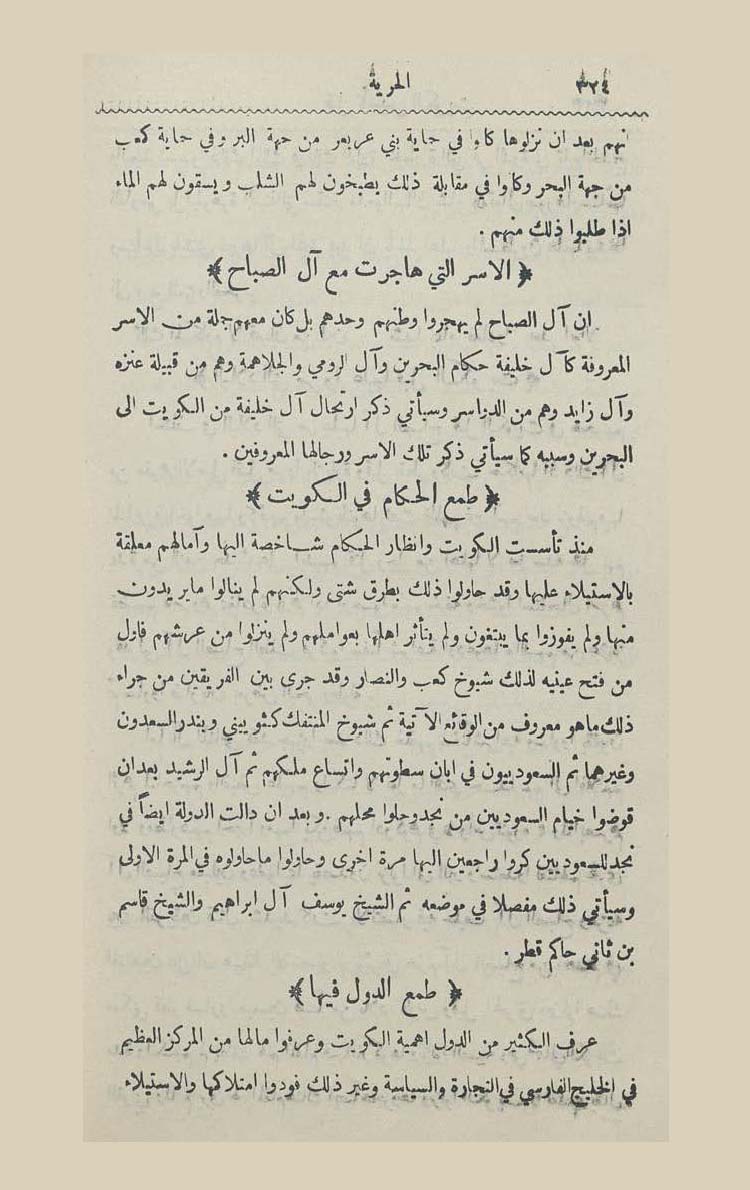 ٣٢٤ الحرية
نهم بعد ان نزلوها كاوا في حماية بني عريعر من جهة البر وفي حماية كعب
من جهة البحر وكاوا في مقابلة ذلك يطبخون لهم الشلب ويسقون لهم الماء
اذا طلبوا ذلك منهم .
﴿ الاسر التي هاجرت مع آل الصباح ﴾
ان آل الصباح لم يهجروا وطنهم وحدهم بل كان معهم جملة من الاسر
المعروفة كآل خليفة حكام البحرين وآل الرومي والجلاهمة وهم من قبيلة عنزه
وآل زايد وهم من الدواسر وسيأتي ذكر ارتحال آل خليفة من الكويت الى
البحرين وسببه كما سيأتي ذكر تلك الاسر ورجالها المعروفين .
﴿ طمع الحكام في الكويت ﴾
منذ تأسست الكويت وانظار الحكام شاخصة اليها وآمالهم معلقة
بالاستيلاء عليها وقد حاولوا ذلك بطرق شتى ولكنهم لم ينالوا مايريدون
منها ولم يفوزوا بما يبتغون ولم يتأثر اهلها بعواملهم ولم ينزلوا من عرشهم فاول
من فتح عينيه لذلك شيوخ كعب والنصار وقد جرى بين الفريقين من جراء
ذلك ماهو معروف من الوقائع الآتية ثم شيوخ المنتفك كثويني وبندر السعدون
وغيرهما ثم السعوديون في ابان سطوتهم واتساع ملكهم ثم آل الرشيد بعدان
قوضوا خيام السعوديين من نجد وحلوا محلهم . وبعد ان دالت الدولة ايضاً في
نجد للسعوديين كروا راجعين اليها مرة اخرى وحاولوا ماحاولوه في المرة الاولى
وسيأتي ذلك مفصلا في موضعه ثم الشيخ يوسف آل ابراهيم والشيخ قاسم
بن ثاني حاكم قطر .
﴿ طمع الدول فيها ﴾
عرف الكثير من الدول اهمية الكويت وعرفوا مالها من المركز العظيم
في الخليج الفارسي في التجارة والسياسة وغير ذلك فودوا امتلاكها والاستيلاء